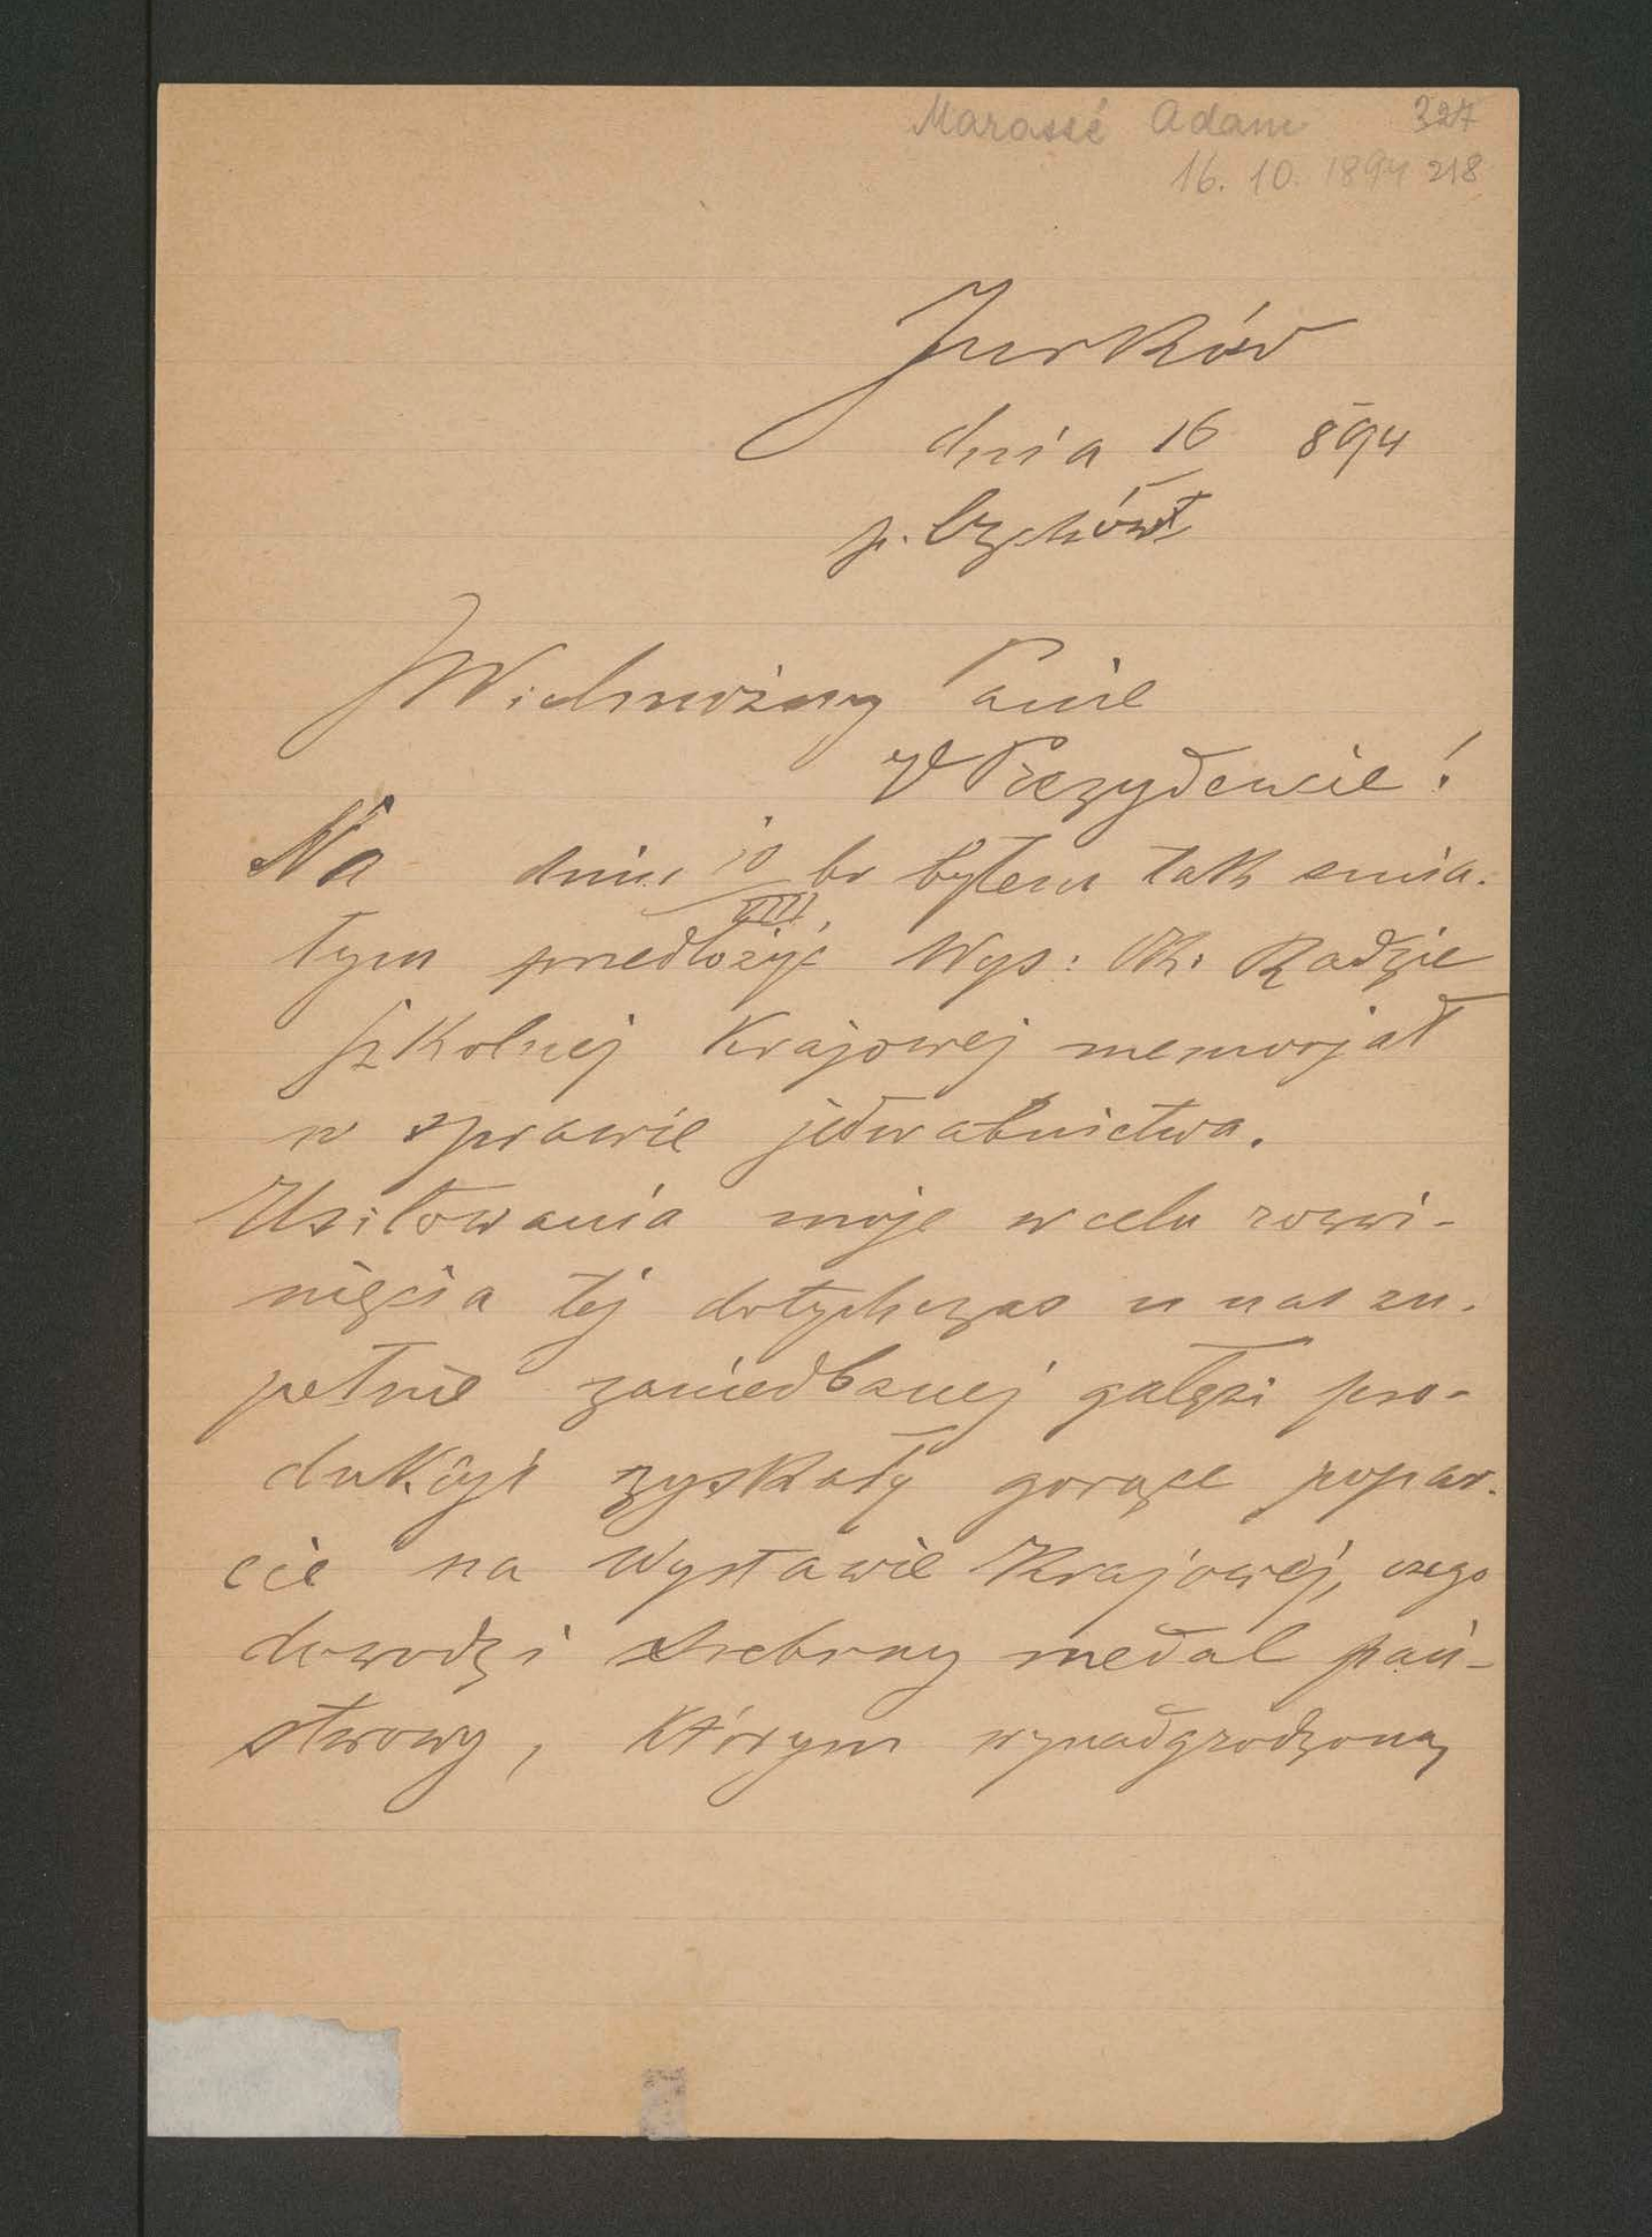 Marassé Adam 327
16. 10. 1894 218
Jurków
dnia 16 894
p. Czchów
JWielmożny Panie
V Prezydencie!
Na dniu 10 br byłem tak śmia-
VIII
łym przedłożyć Wys: Ck: Radzie
Szkolnej Krajowej memorjał
w sprawie jedwabnictwa.
Usiłowania moje w celu rozwi-
nięcia tej dotychczas u nas zu-
pełnie zaniedbanej gałęzi pro-
dukcyi zyskały gorące popar-
cie na Wystawie Krajowej, czego
dowodzi srebrny medal pań-
stwowy, którym wynadgrodzony